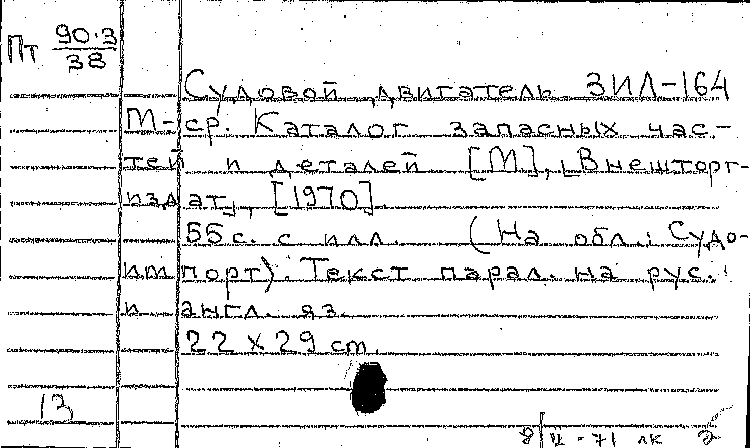 Пт 90·3
38
Судовой двигатель ЗИЛ-164
М-ср. Каталог запасных час-
тей и деталей [М], [Внешторг-
издат], [1970].
55 с. с илл. (На обл.: Судо-
импорт). Текст парал. на рус.
и англ. яз.
22 x 29 cm.
13
71 лк